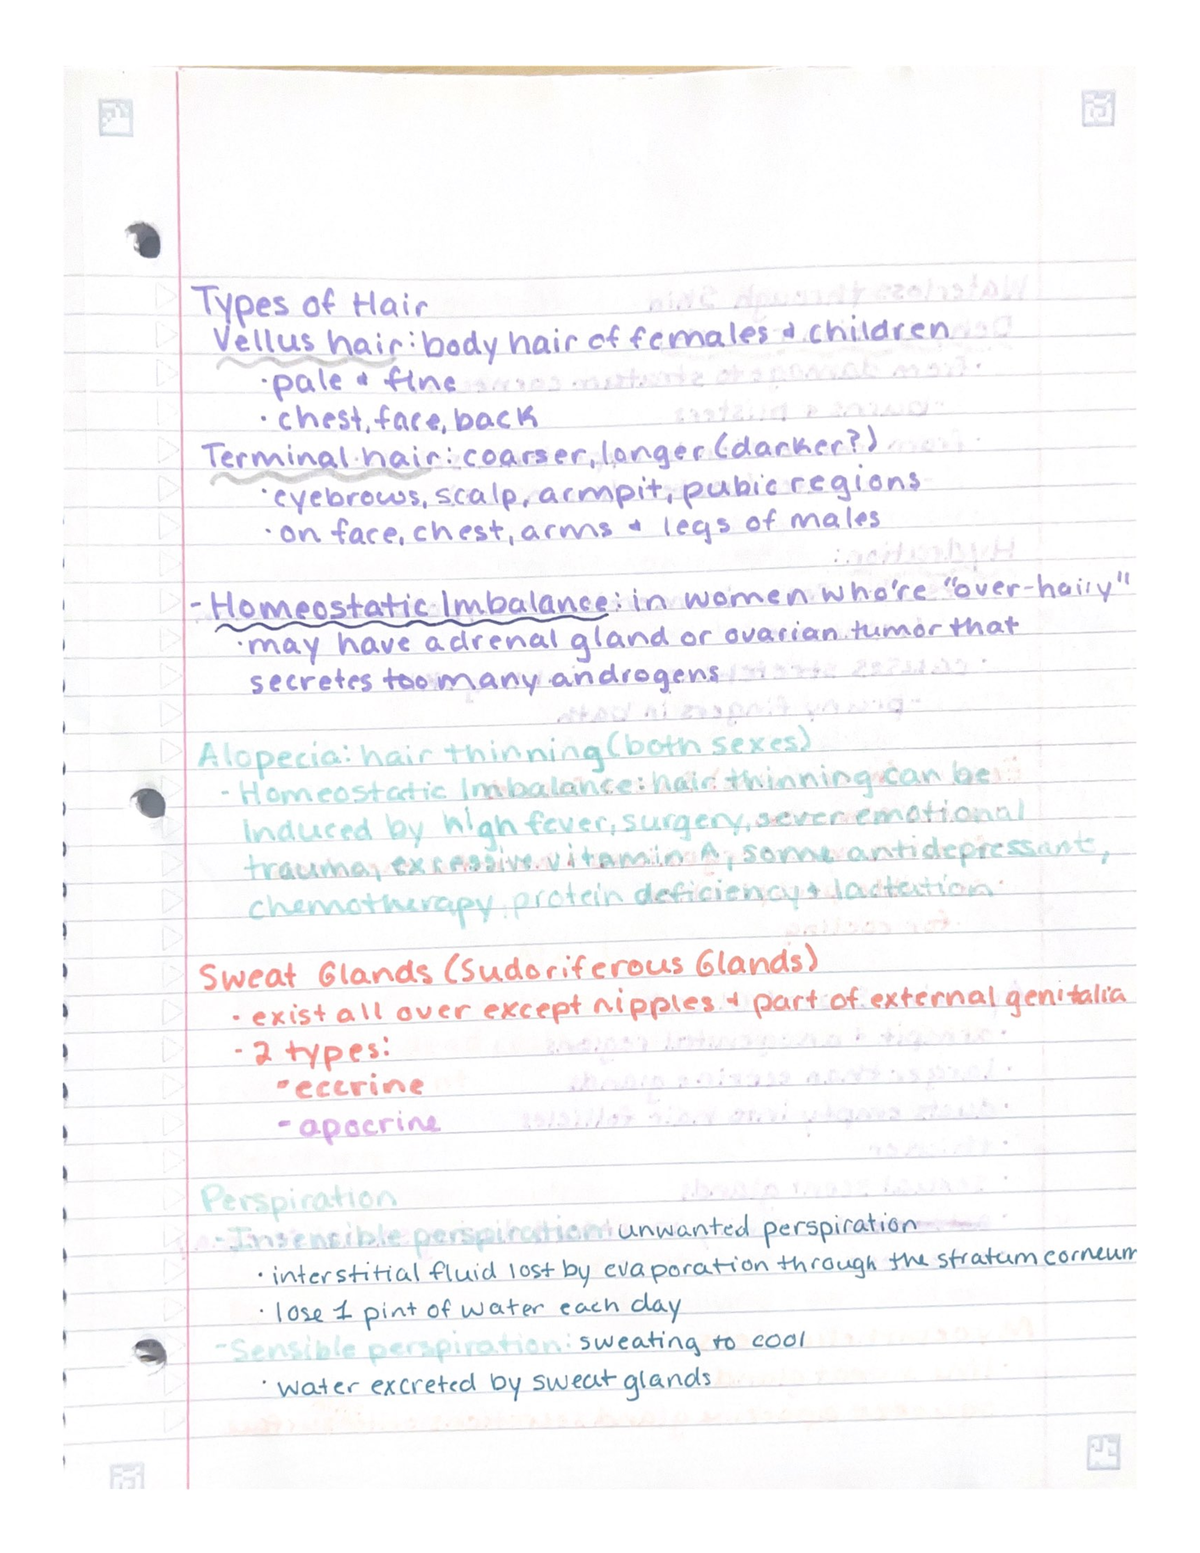 Types of Hair
Vellus hair: body hair of females & children
· pale & fine
· chest, face, back
Terminal hair: coarser, longer (darker?)
· eyebrows, scalp, armpit, pubic regions
· on face, chest, arms & legs of males
- Homeostatic Imbalance: in women who're "over-hairy"
· may have adrenal gland or ovarian tumor that
secretes too many androgens
Alopecia: hair thinning (both sexes)
- Homeostatic Imbalance: hair thinning can be
induced by high fever, surgery, sever emotional
trauma, excessive vitamin A, some antidepressant,
chemotherapy, protein deficiency & lactation
Sweat Glands (Sudoriferous Glands)
· exist all over except nipples & part of external genitalia
- 2 types:
- eccrine
- apocrine
Perspiration
- Insensible perspiration: unwanted perspiration
· interstitial fluid lost by evaporation through the stratum corneum
· lose 1 pint of water each day
- Sensible perspiration: sweating to cool
· water excreted by sweat glands